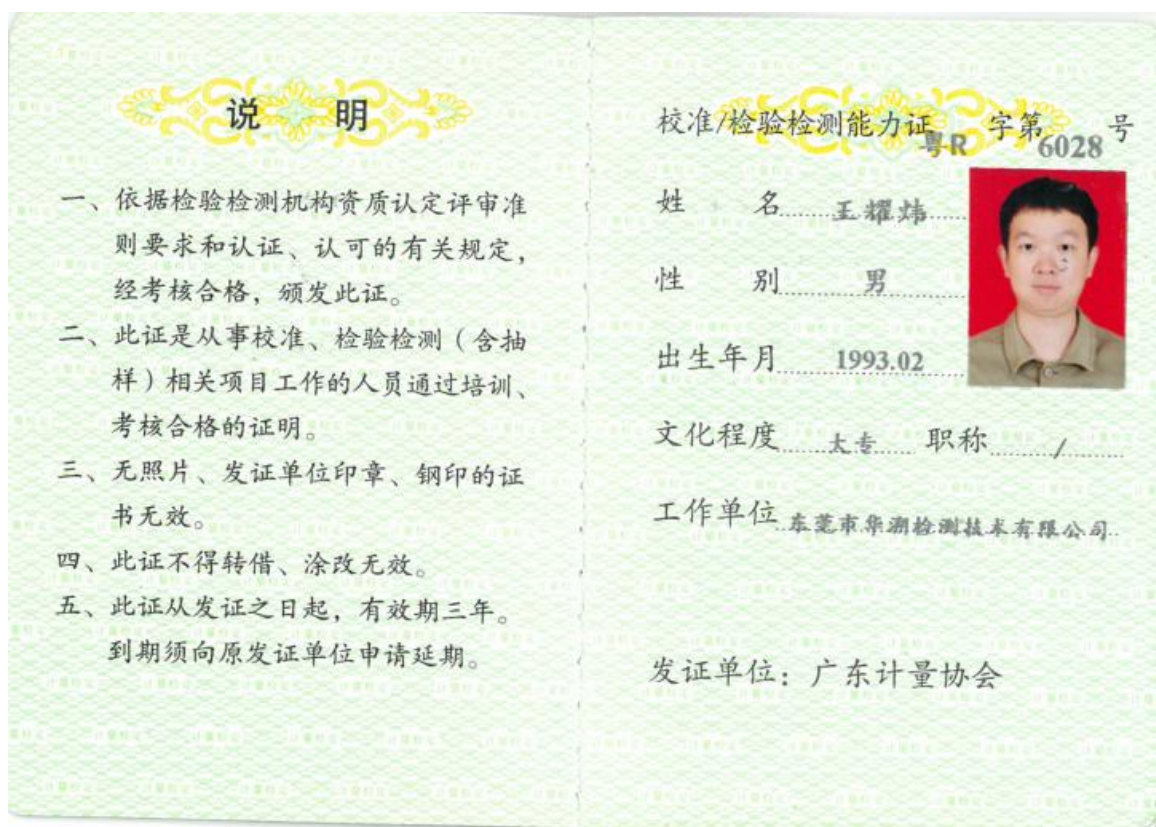 说 明
一、依据检验检测机构资质认定评审准
则要求和认证、认可的有关规定，
经考核合格，颁发此证。
二、此证是从事校准、检验检测（含抽
样）相关项目工作的人员通过培训、
考核合格的证明。
三、无照片、发证单位印章、钢印的证
书无效。
四、此证不得转借、涂改无效。
五、此证从发证之日起，有效期三年。
到期须向原发证单位申请延期。
校准/检验检测能力证 粤R 字第6028号
姓 名 王耀炜
性 别 男
出生年月 1993.02
文化程度 大专 职称 /
工作单位 东莞市华溯检测技术有限公司
发证单位：广东计量协会